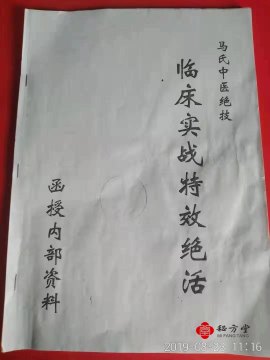 马氏中医绝技
临床实战特效绝活
函授内部资料
秘方堂
MI FANG TANG
2019-08-03 11:16